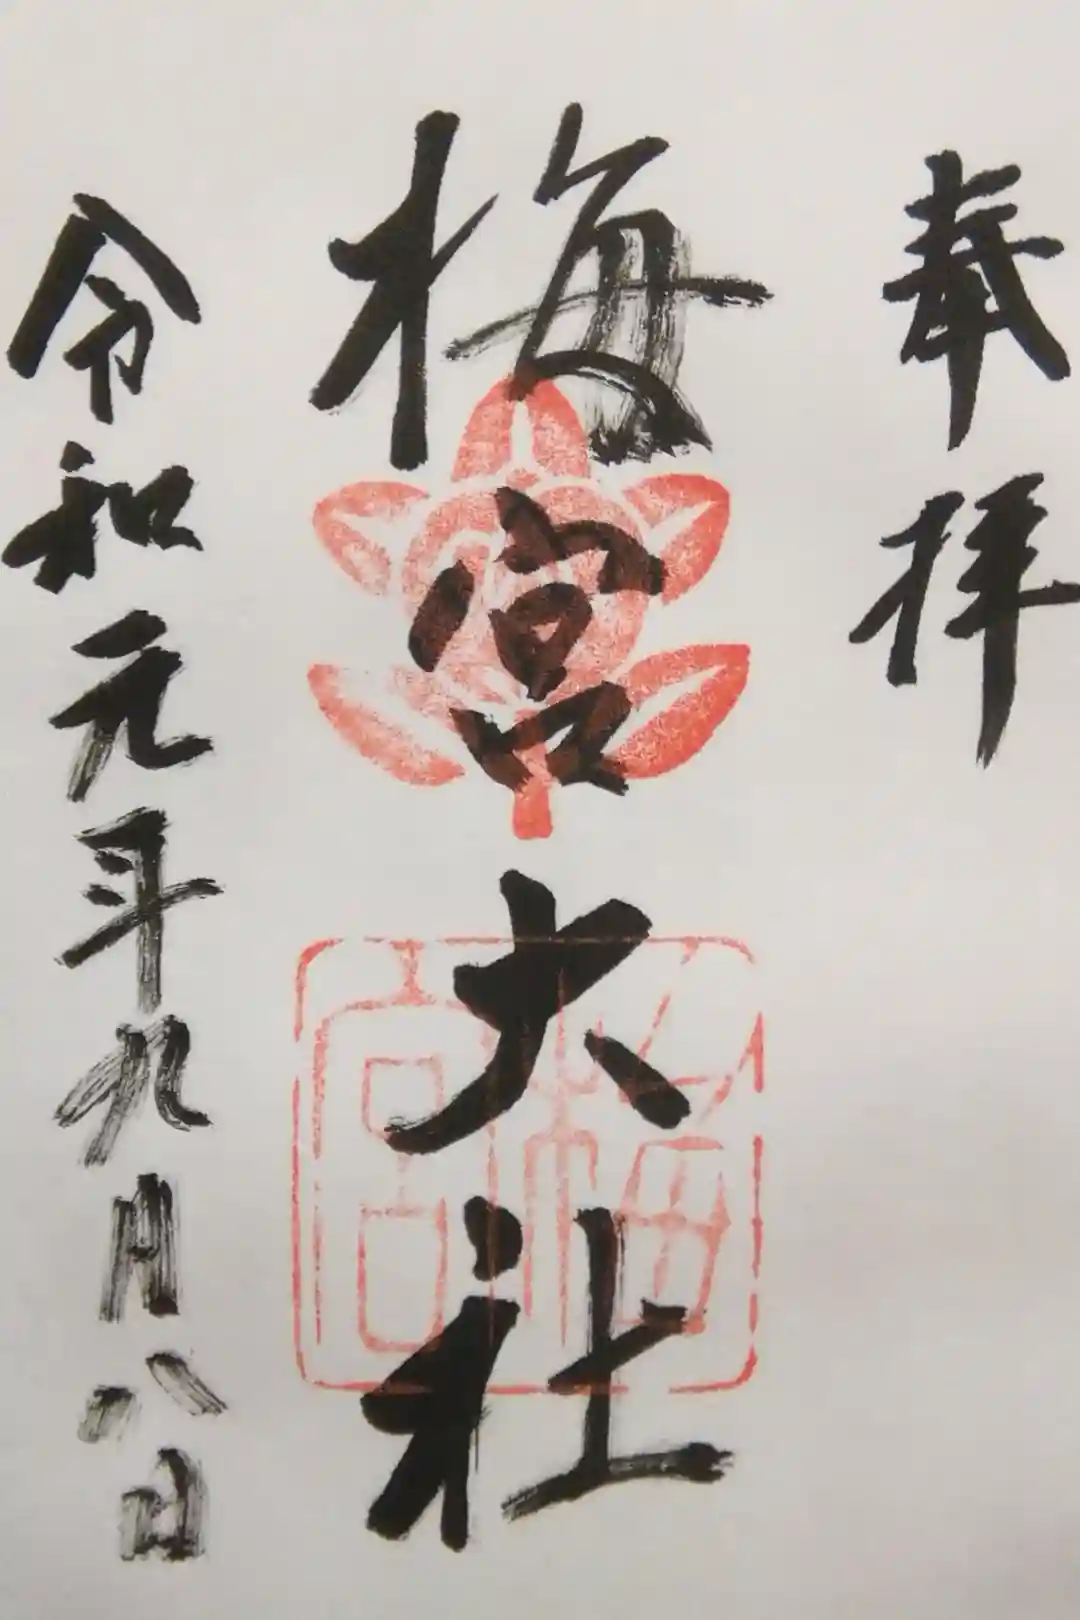 奉拝
梅宮大社
梅宮
令和元年九月八日